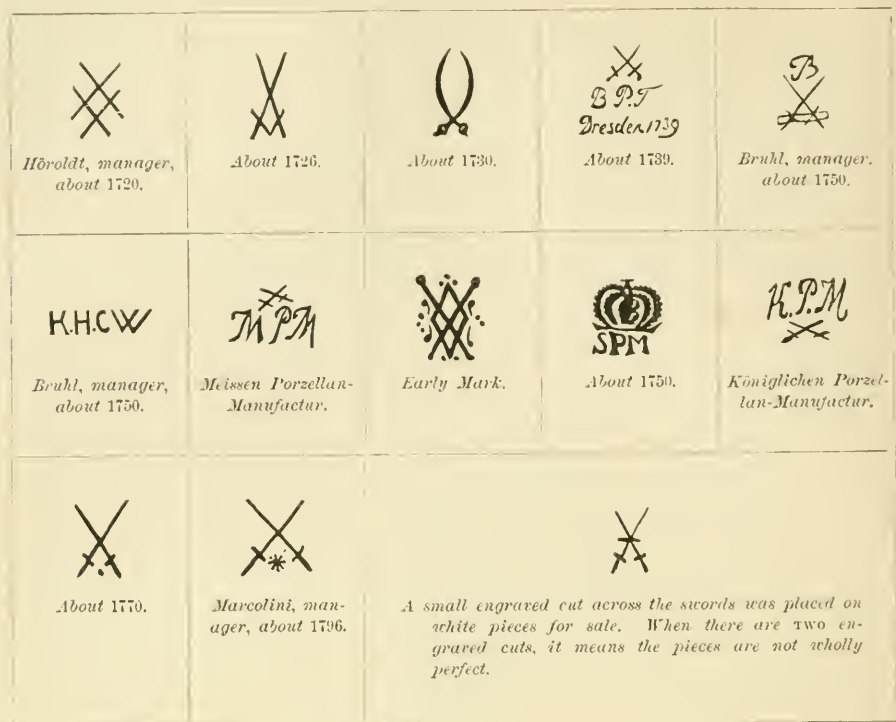 B P.T
Dresden 1739
B
Höroldt, manager,
about 1720.
About 1726.
About 1730.
About 1739.
Bruhl, manager.
about 1750.
K.H.C.W
M PM
SPM
K.P.M
Bruhl, manager,
about 1750.
Meissen Porzellan-
Manufactur.
Early Mark.
About 1750.
Königlichen Porzel-
lan-Manufactur.
About 1770.
Marcolini, man-
ager, about 1796.
A small engraved cut across the swords was placed on
white pieces for sale. When there are TWO en-
graved cuts, it means the pieces are not wholly
perfect.